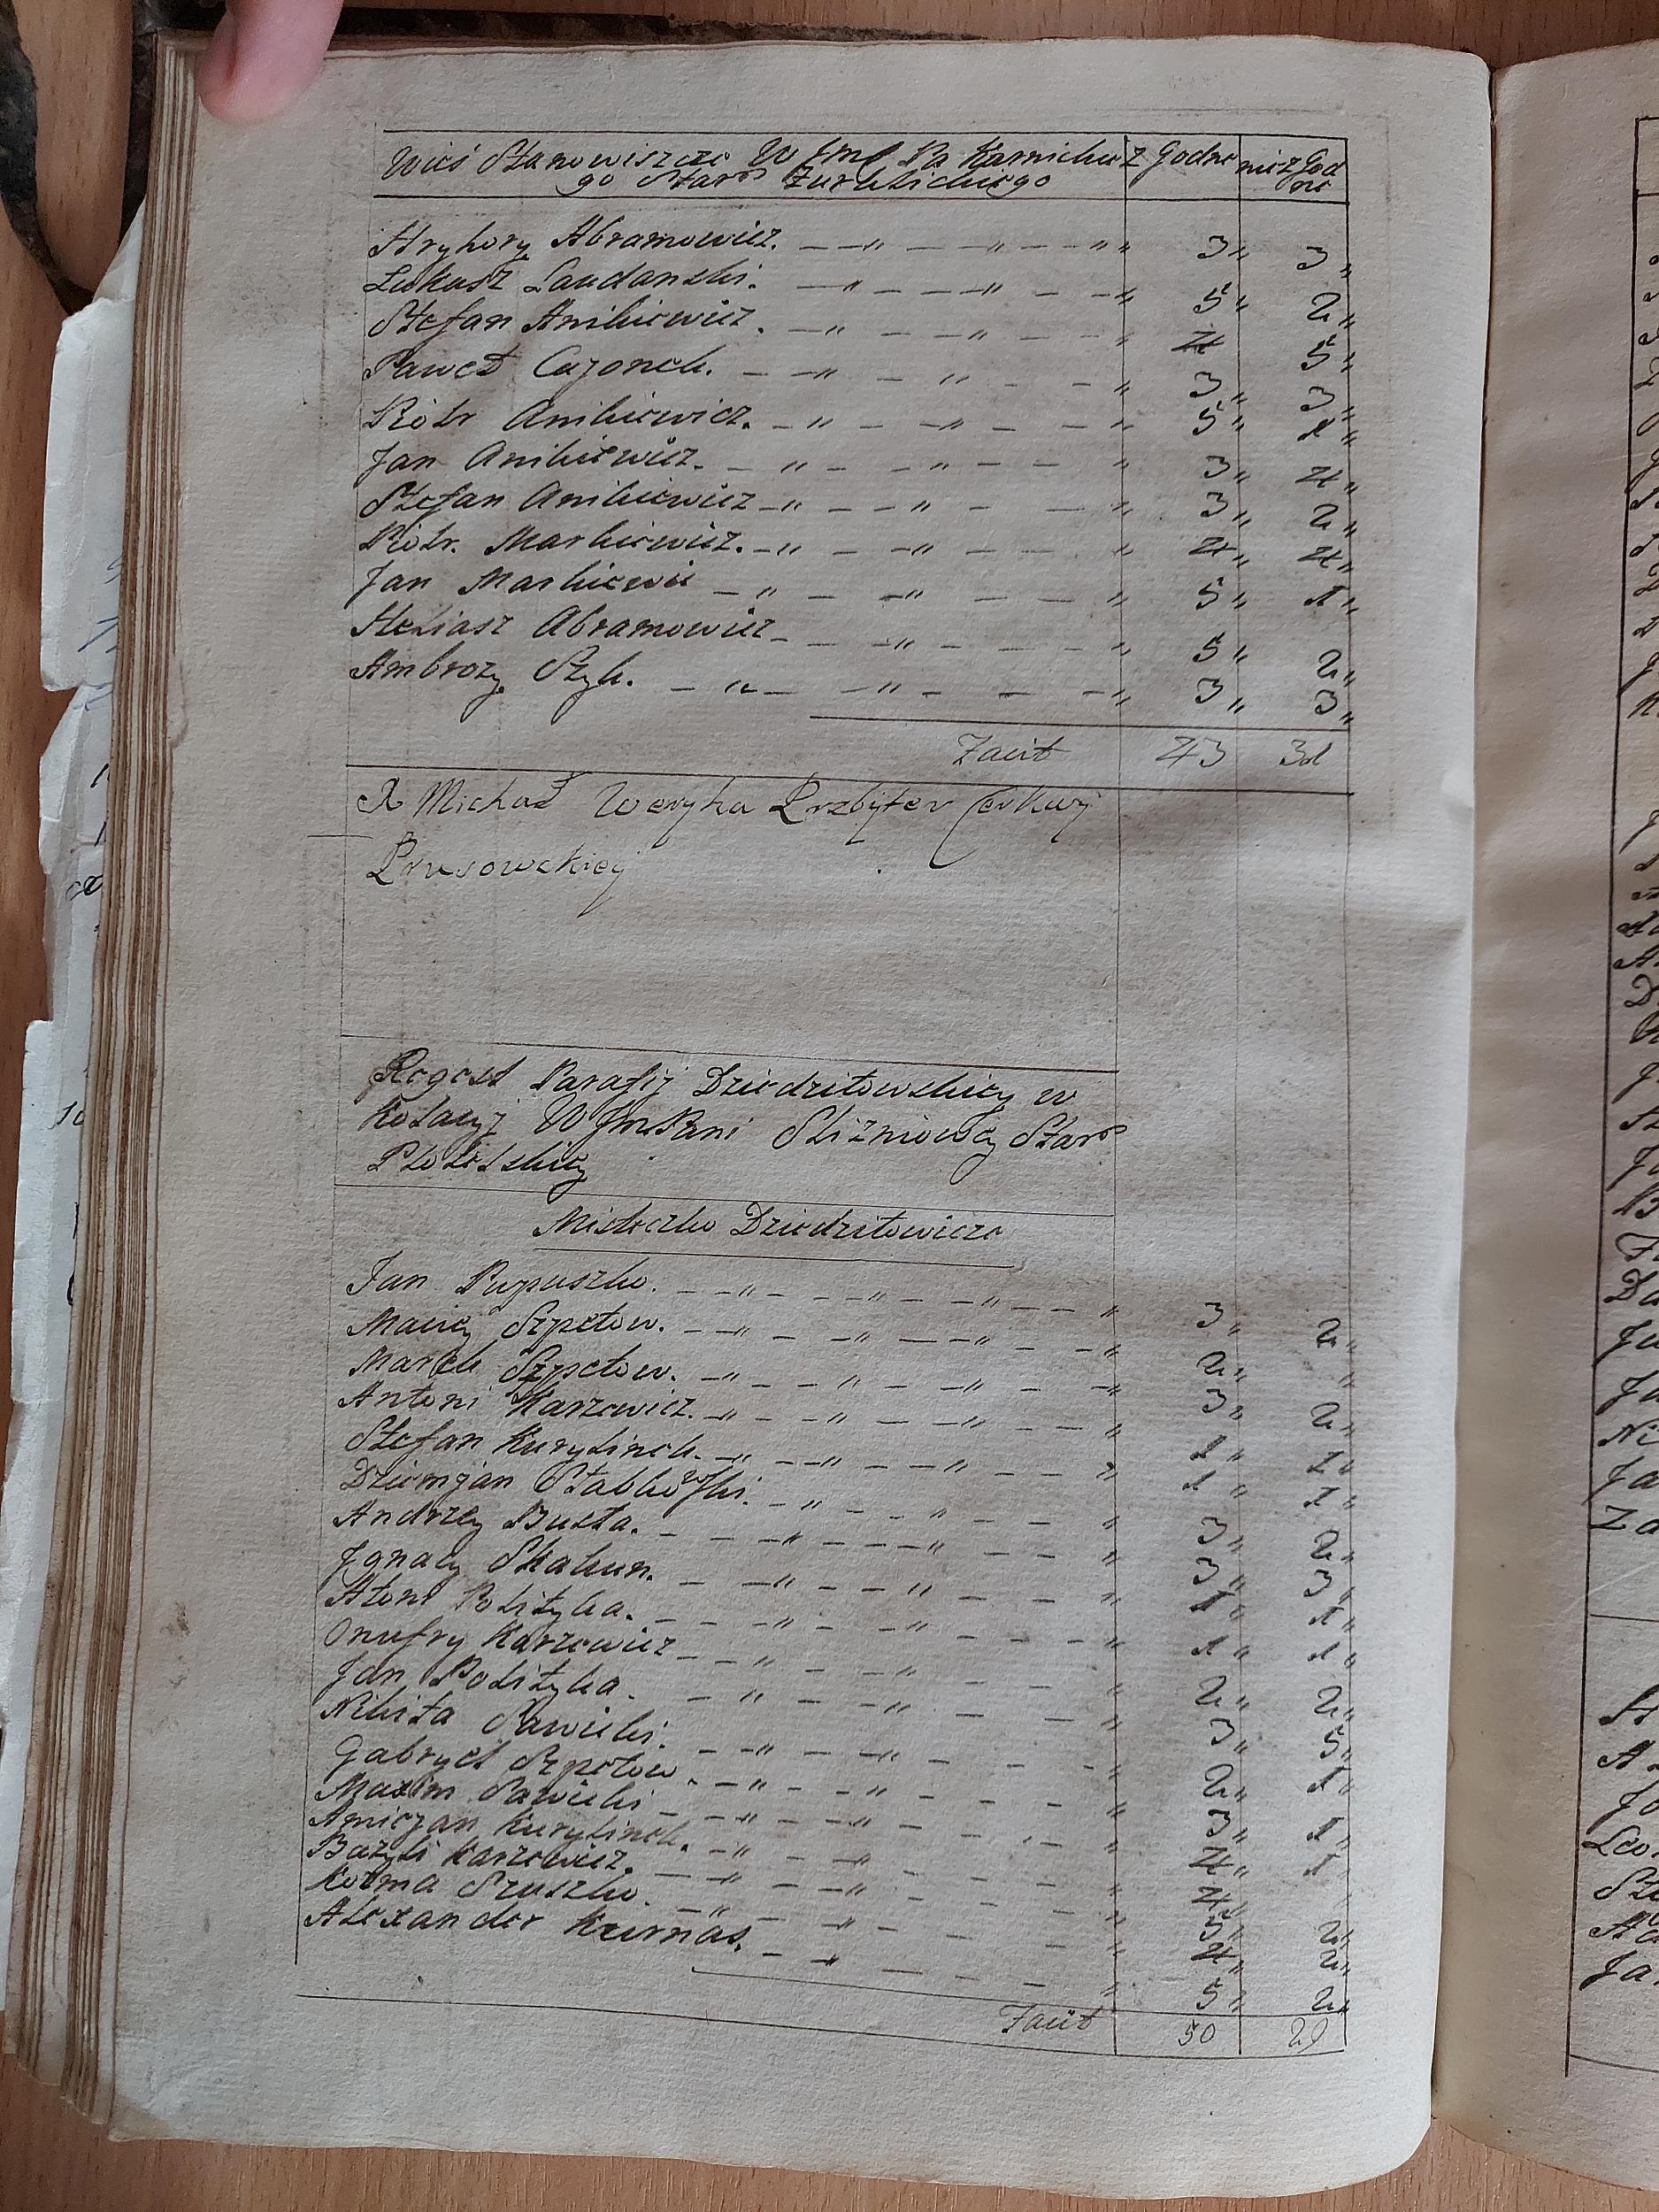 Wieś Stanowiszcze W Jmć Pa Karnickie Zgodne niezgod
go Staros Zurklickiego ne
Hryhory Abramowicz. 3 3
Łukasz Laudanski. 5 2
Stefan Anikiewicz. 4 5
Paweł Cajonek. 3 3
Piotr Anikiewicz. 5 1
Jan Anikiewicz. 3 4
Stefan Anikiewicz 3 2
Piotr. Markiewicz. 4 4
Jan Markiewic 5 1
Heliasz Abramowicz 5 2
Ambrozy Szyk. 3 3
Facit 43 31
X Michał Weryha Przbyter Cerkwi
Prusowckiej
Regest Parafij Dziedziłowskiey w
Kolacyj W JmPani Slizniowey Staros
Miasteczko Dziedziłowicze
Jan Pupuszko. 3 2
Maciey Szpetow. 2
Marek Szpetow. 3 2
Antoni Karzewicz. 1 1
Stefan Kurylinek. 1 1
Dziemjan Stabkowski. 3 2
Andrzey Busła. 3 3
Jgnacy Skakun. 1 1
Atoni Polityka. 1 1
Onufry Karzewicz 2 2
Jan Polityka. 3 5
Nikita Sawicki. 2 1
Gabryel Szpetow. 3 1
Maxim Sawicki 4 1
Amiejan Kurylinek. 4
Bazyli Karzewicz. 5 2
Kozma Szuszko. 4 2
Alexander Kurnas. 5 2
Facit 50 29